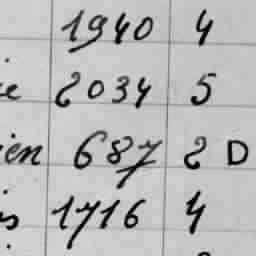 1940 4
e 2034 5
ien 687 2 D
s 1716 4